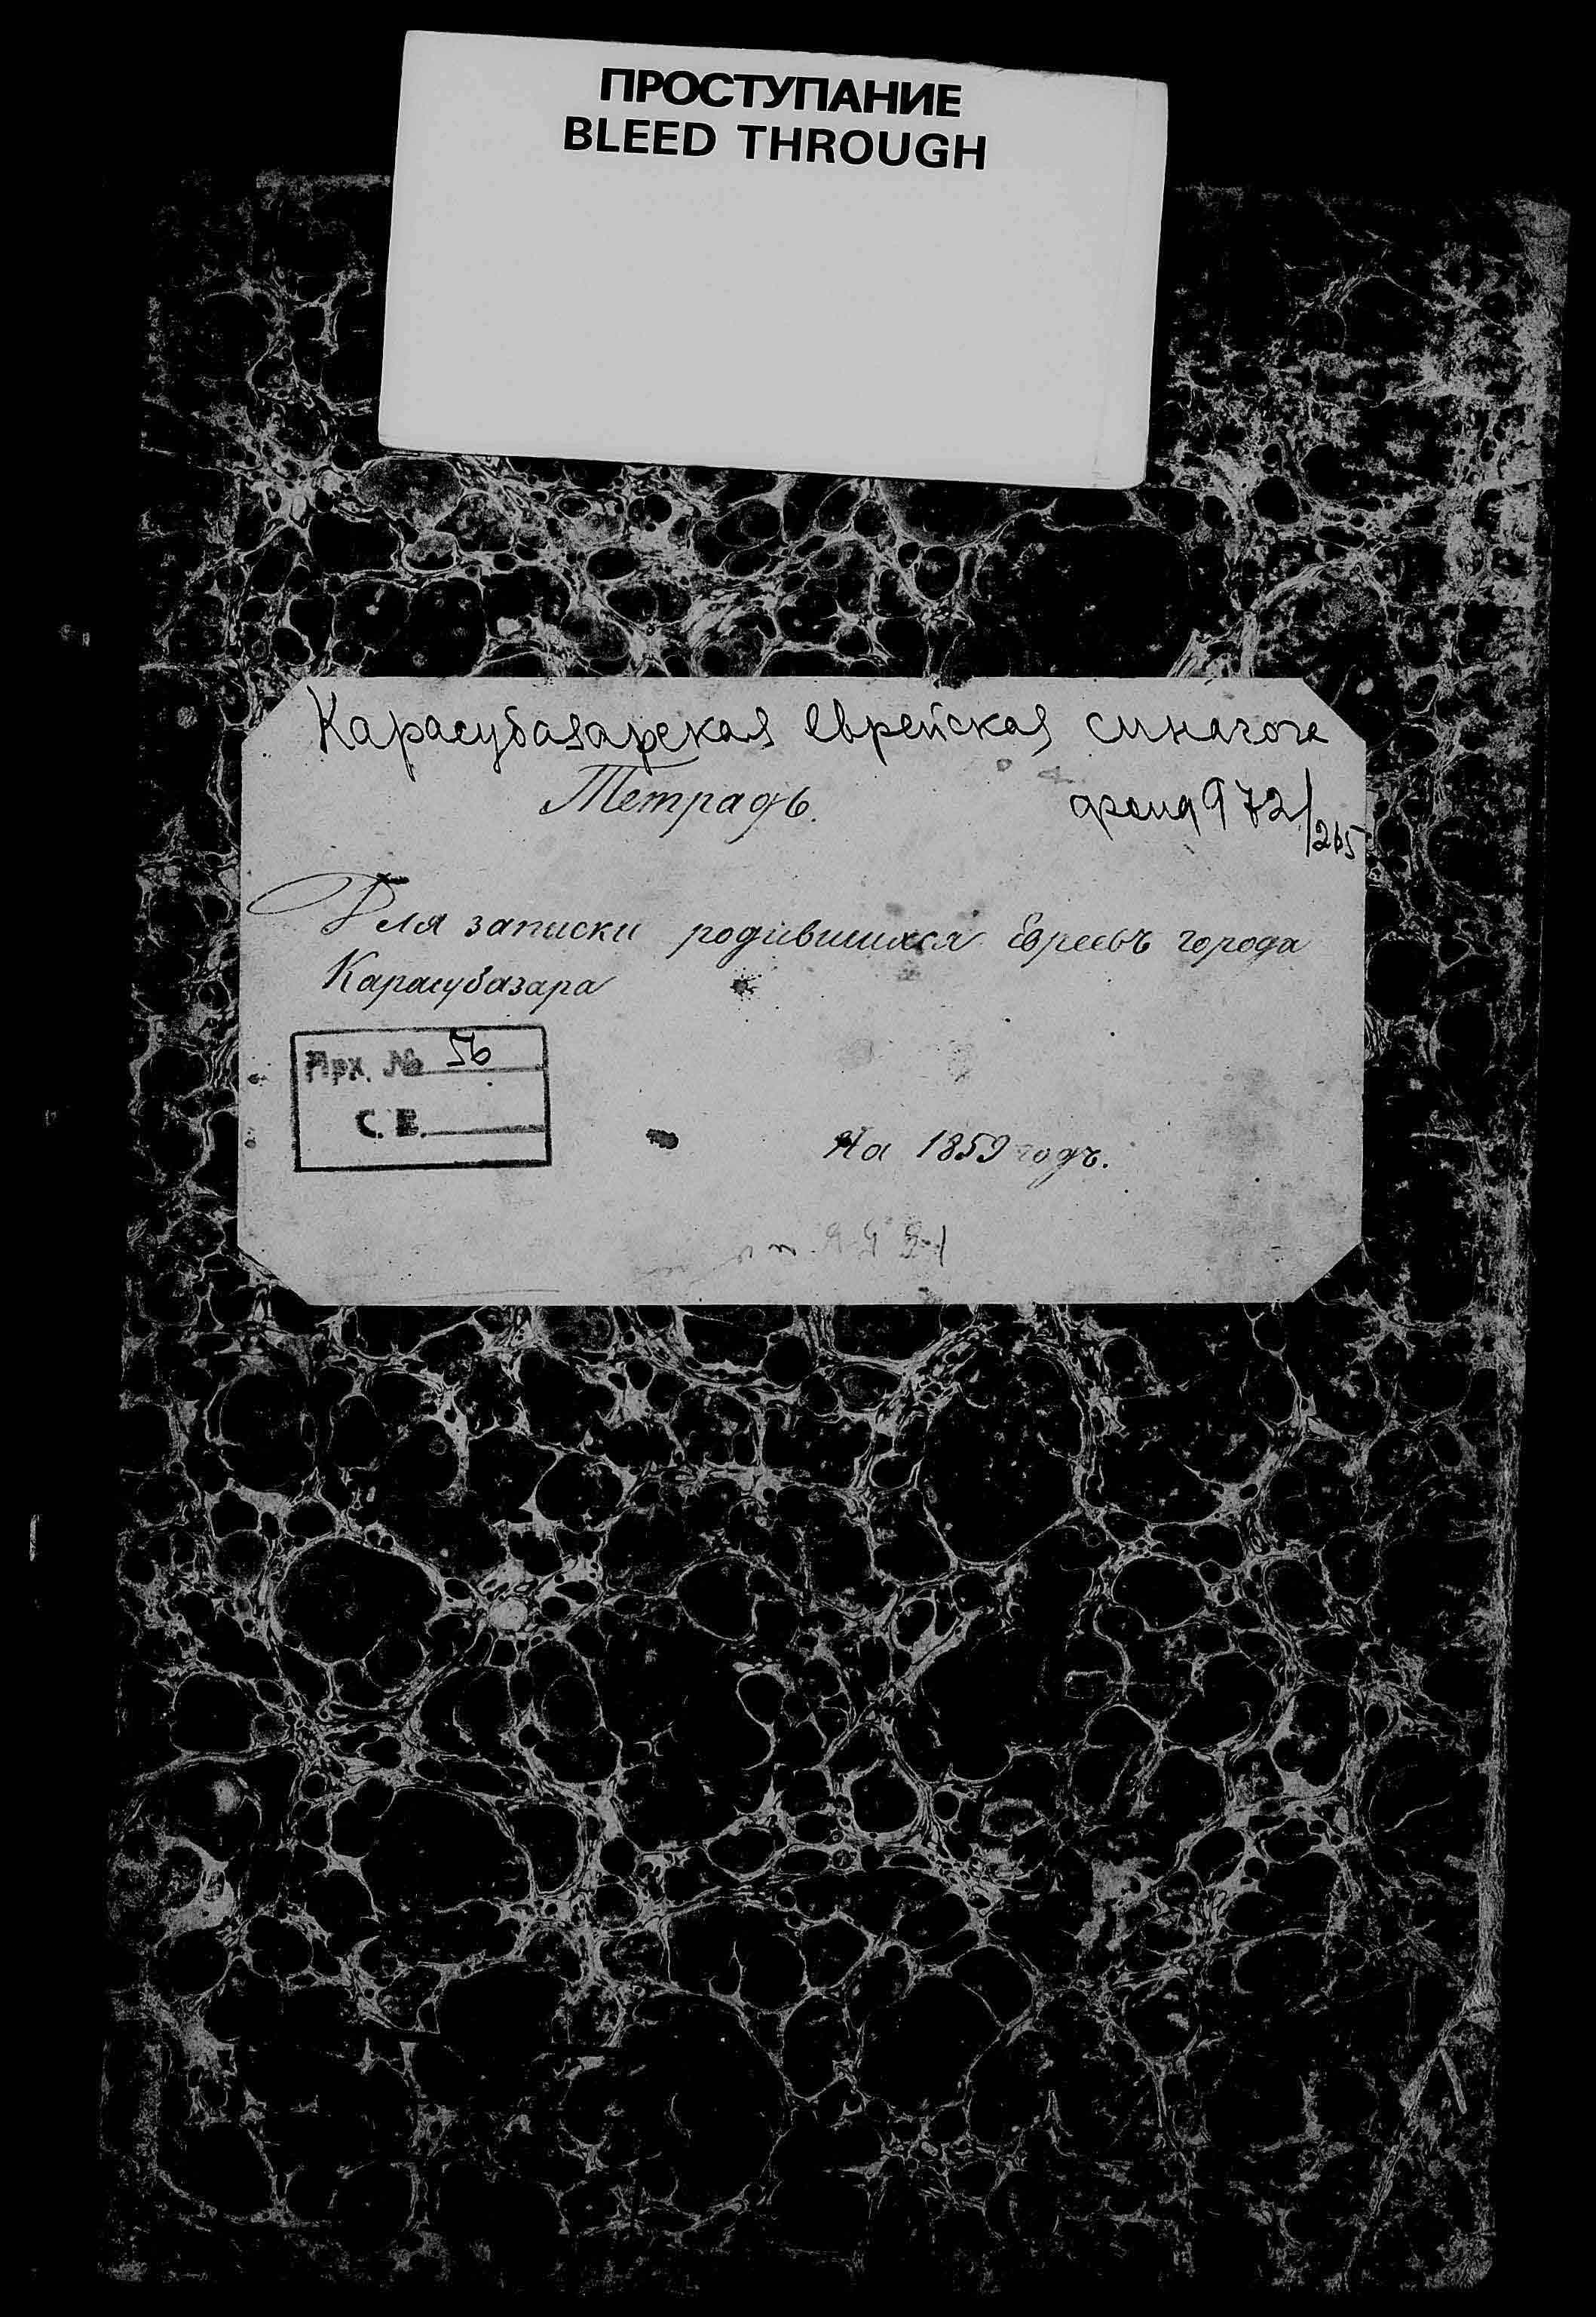 ПРОСТУПАНИЕ
BLEED THROUGH
Карасубазарская еврейская синагога
Тетрадь.
фонд 972/265
Для записки родившихся Евреевъ города
Карасубазара
Арх. № 56
С. Е.
На 1859 годъ.